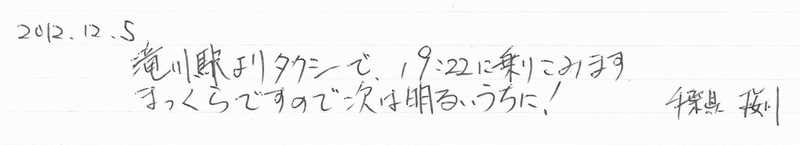 2012.12.5
滝川駅よりタクシーで、19:22に乗りこみます
まっくらですので次は明るいうちに!
千葉県 桜川